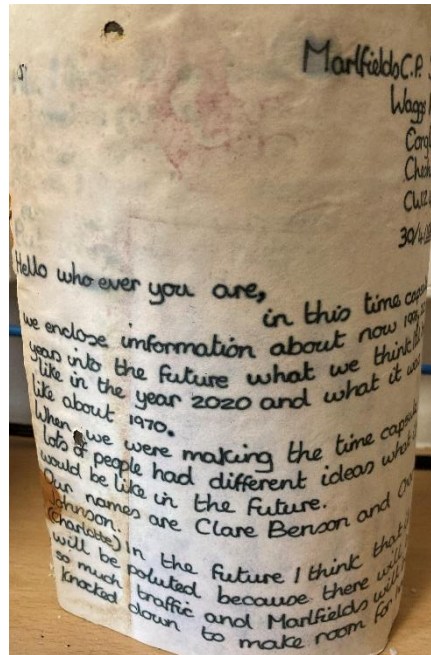 Marlfields C.P. S
Waggs
Cong
Chesh
CW12
30/4/
Hello who ever you are,
in this time capsu
we enclose imformation about now
years into the future what we think
like in the year 2020 and what it wa
like about 1970.
When we were making the time capsule
lots of people had different ideas what
would be like in the future.
Our names are Clare Benson and
Johnson.
(Charlotte) In the future I think that
will be poluted because there will
so much traffic and Marlfields will
knocked down to make room for